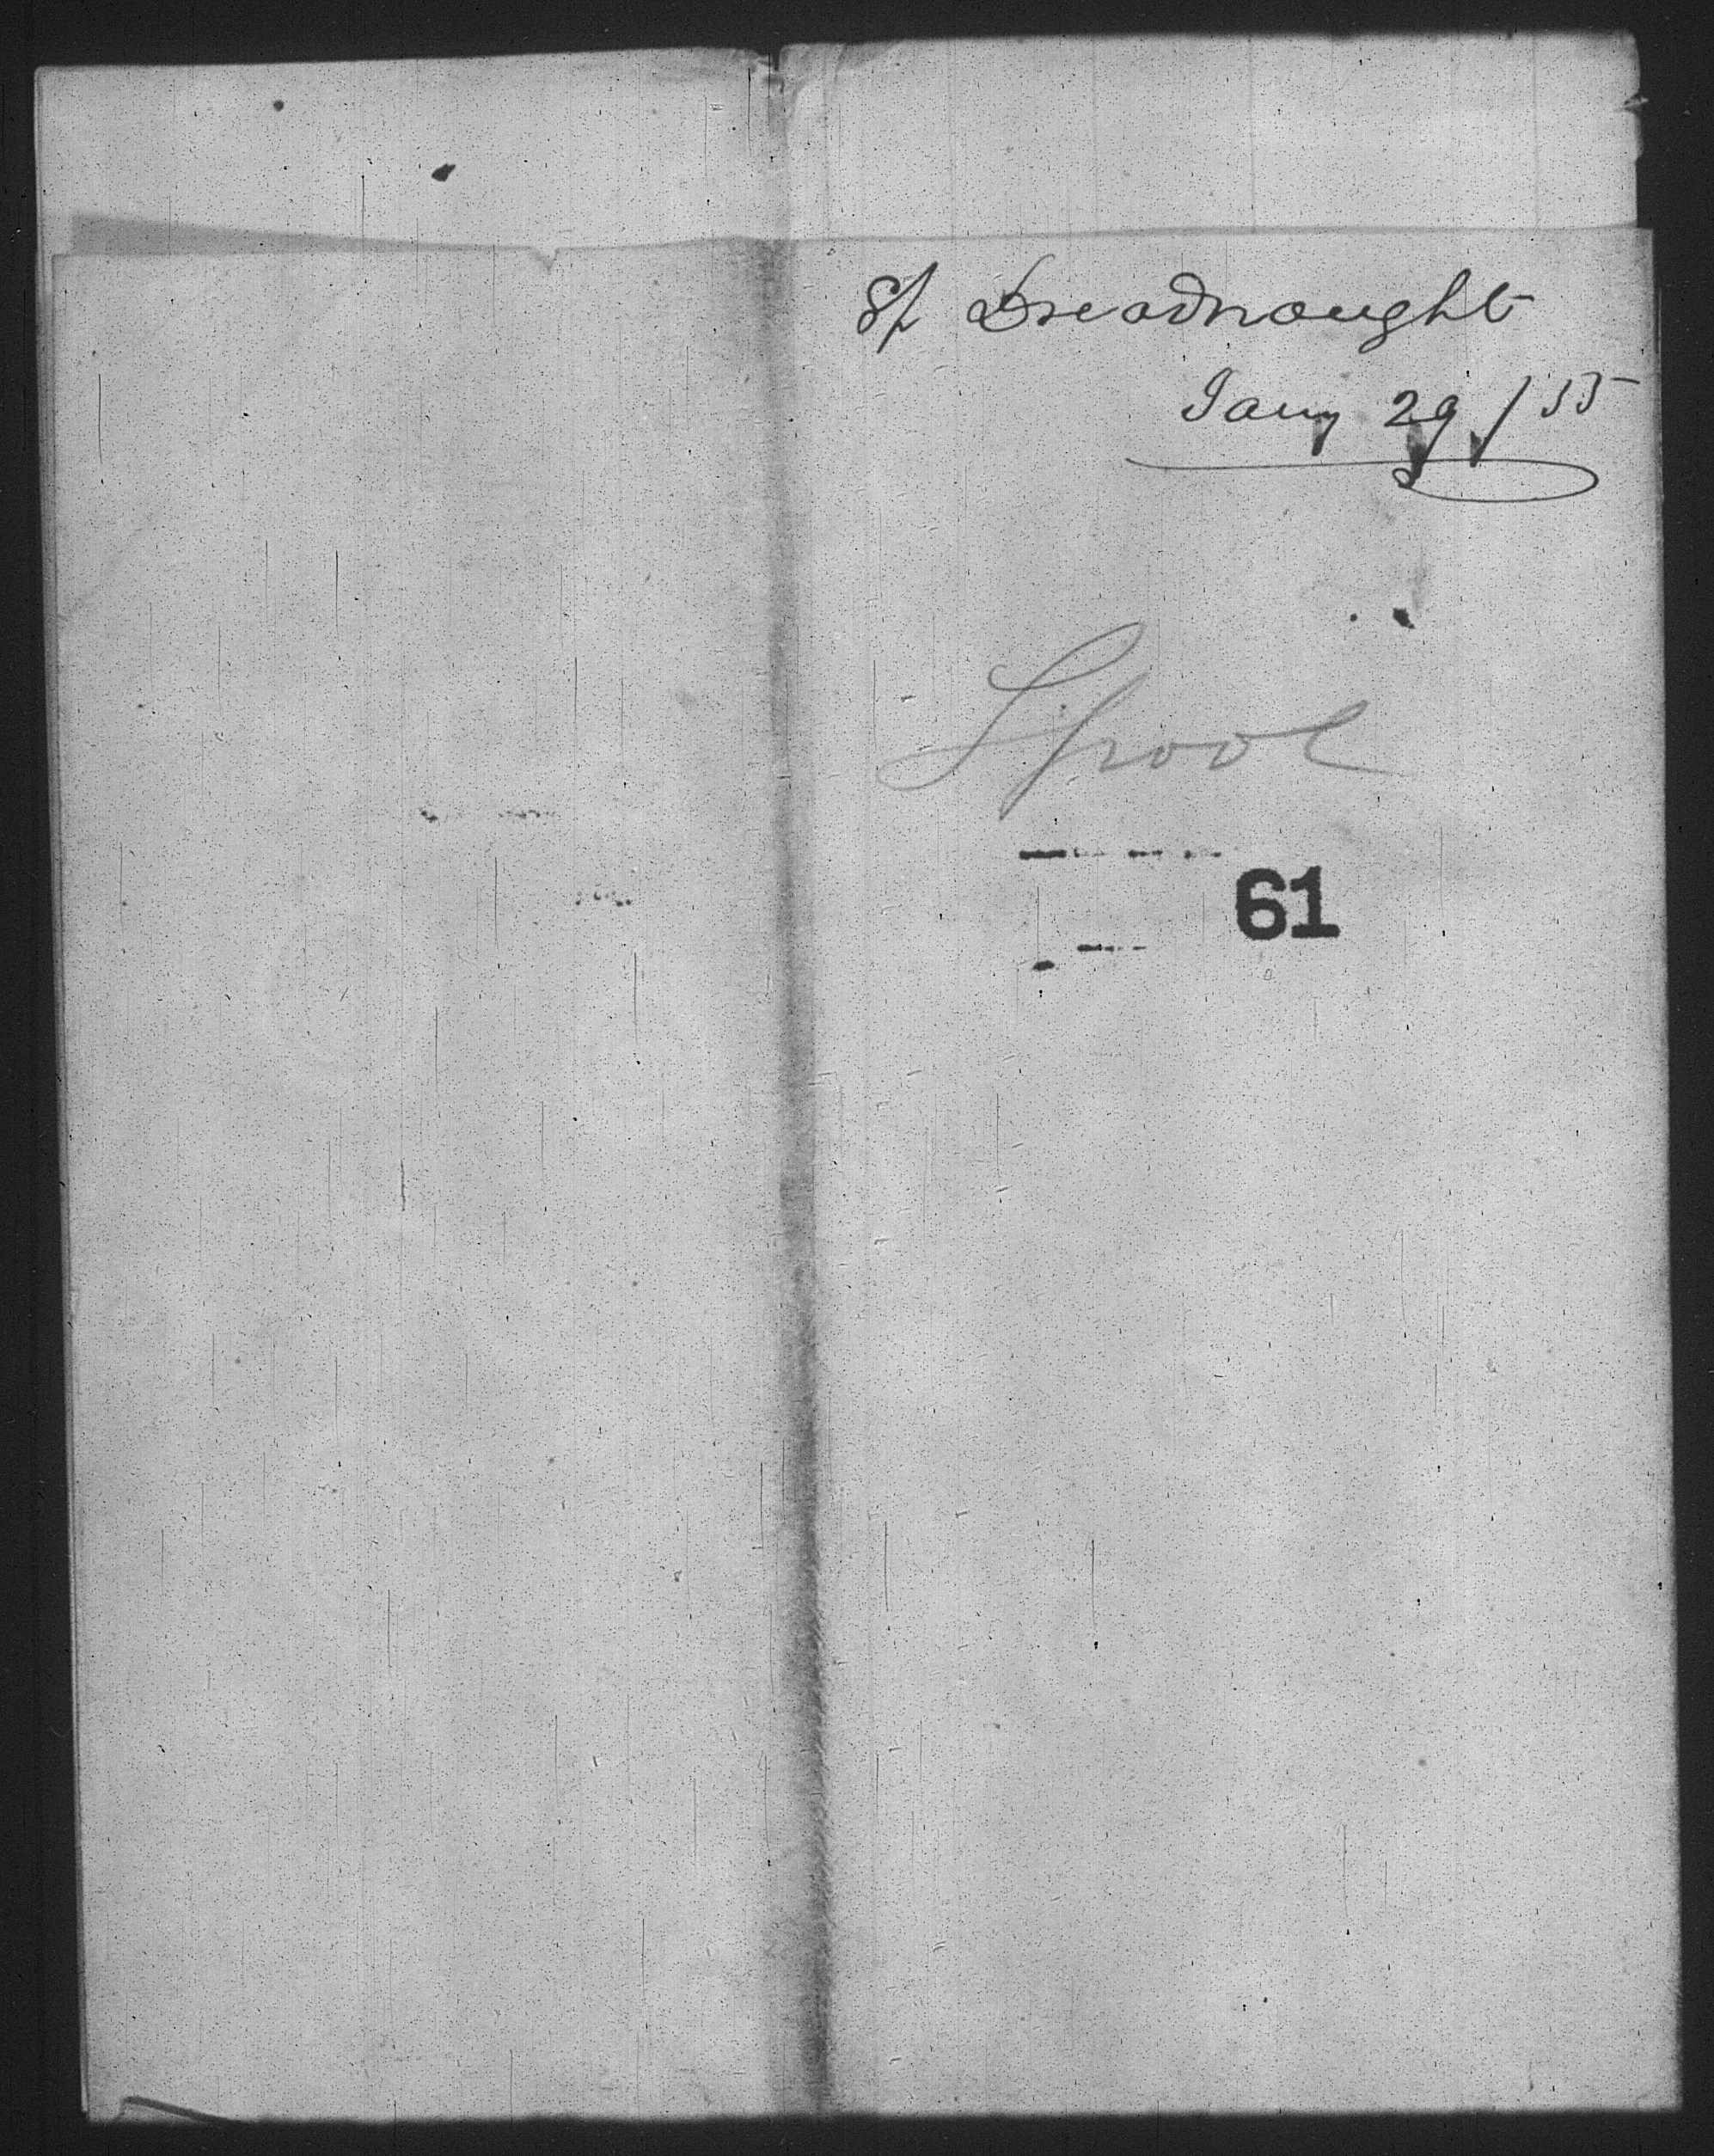 S/ Dreadnought
Jany 29 / 55
Lpool
61